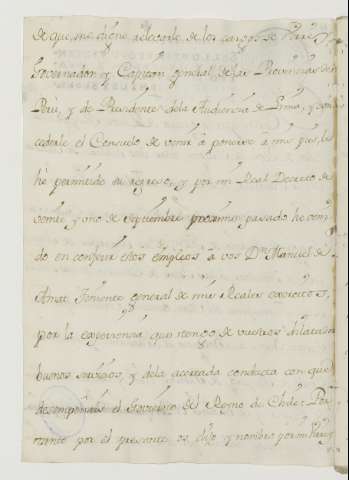 de que me digne relevarle de los cargos de Virrey
Governador y Capitan general de las Provincias del
Perú, y de Presidente dela Audiencia de Lima, y con
cederle el Consuelo de venir à ponerse a mis pies, le
hé permitido su regreso, y por mi Real Decreto de
veinte y uno de Septiembre proximo pasado he veni
do en conferir estos empleos à vos Dn Manuel de
Amat Teniente general de mis Reales exercitos,
por la experiencia que tengo de vuestros dilatados
buenos servicios, y dela acertada conducta con que
desempeñais el Govierno del Reyno de Chile: Por
tanto por el presente os elijo y nombro por mi Virrey